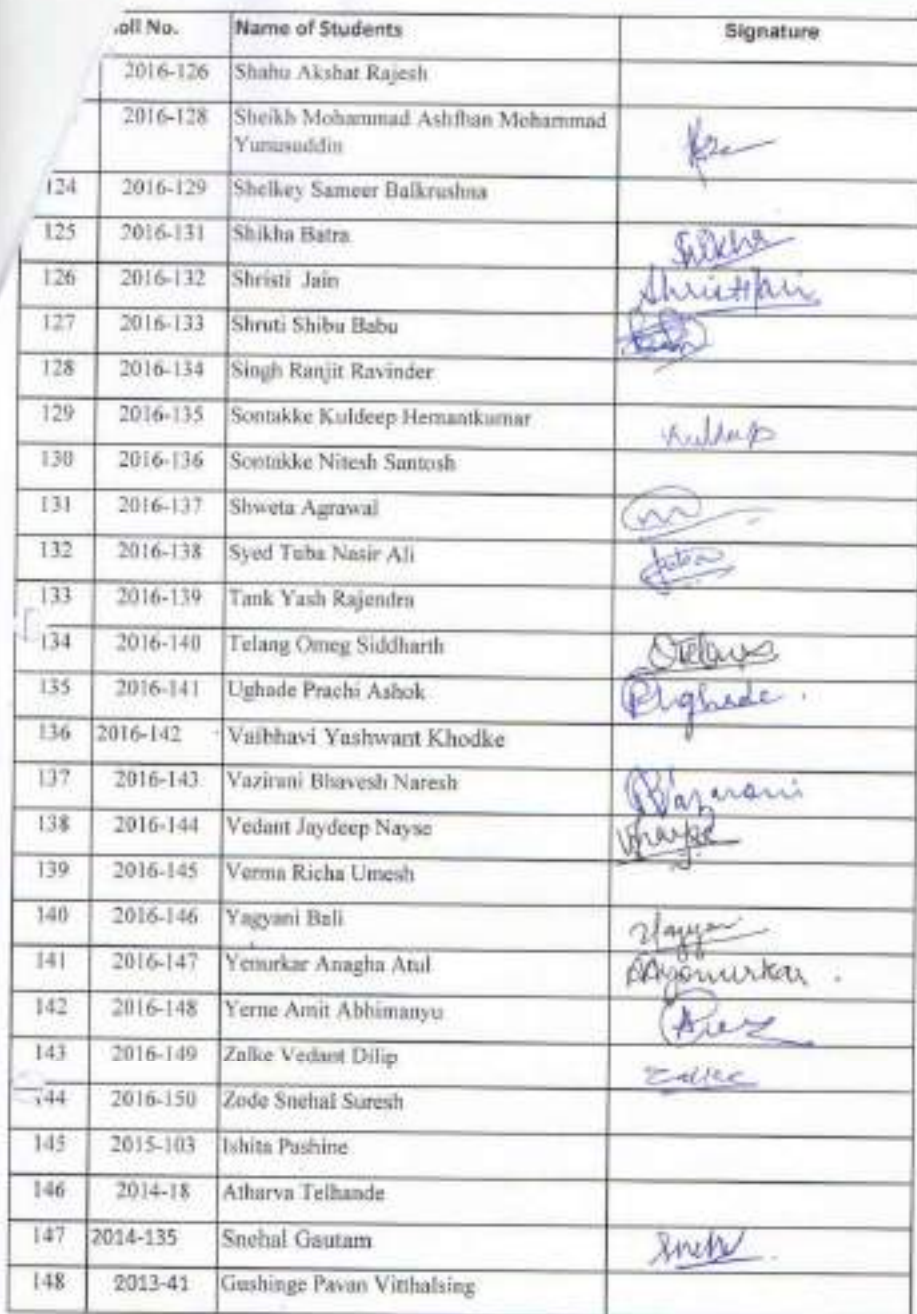 oll No. Name of Students Signature
2016-126 Shahu Akshat Rajesh
2016-128 Sheikh Mohammad Ashfhan Mohammad
Yunusuddin
124 2016-129 Shelkey Sameer Balkrushna
125 2016-131 Shikha Batra Shikha
126 2016-132 Shristi Jain Shristi Jain
127 2016-133 Shruti Shibu Babu
128 2016-134 Singh Ranjit Ravinder
129 2016-135 Sontakke Kuldeep Hemantkumar Kuldeep
130 2016-136 Sontakke Nitesh Santosh
131 2016-137 Shweta Agrawal
132 2016-138 Syed Tuba Nasir Ali
133 2016-139 Tank Yash Rajendra
134 2016-140 Telang Omeg Siddharth OTelang
135 2016-141 Ughade Prachi Ashok PUghade.
136 2016-142 Vaibhavi Yashwant Khodke
137 2016-143 Vazirani Bhavesh Naresh
138 2016-144 Vedant Jaydeep Nayse
139 2016-145 Verma Richa Umesh
140 2016-146 Yagyani Bali
141 2016-147 Yenurkar Anagha Atul
142 2016-148 Yerne Amit Abhimanyu
143 2016-149 Zalke Vedant Dilip Zalke
144 2016-150 Zode Snehal Suresh
145 2015-103 Ishita Pashine
146 2014-18 Atharva Telhande
147 2014-135 Snehal Gautam Sneh
148 2013-41 Gushinge Pavan Vitthalsing